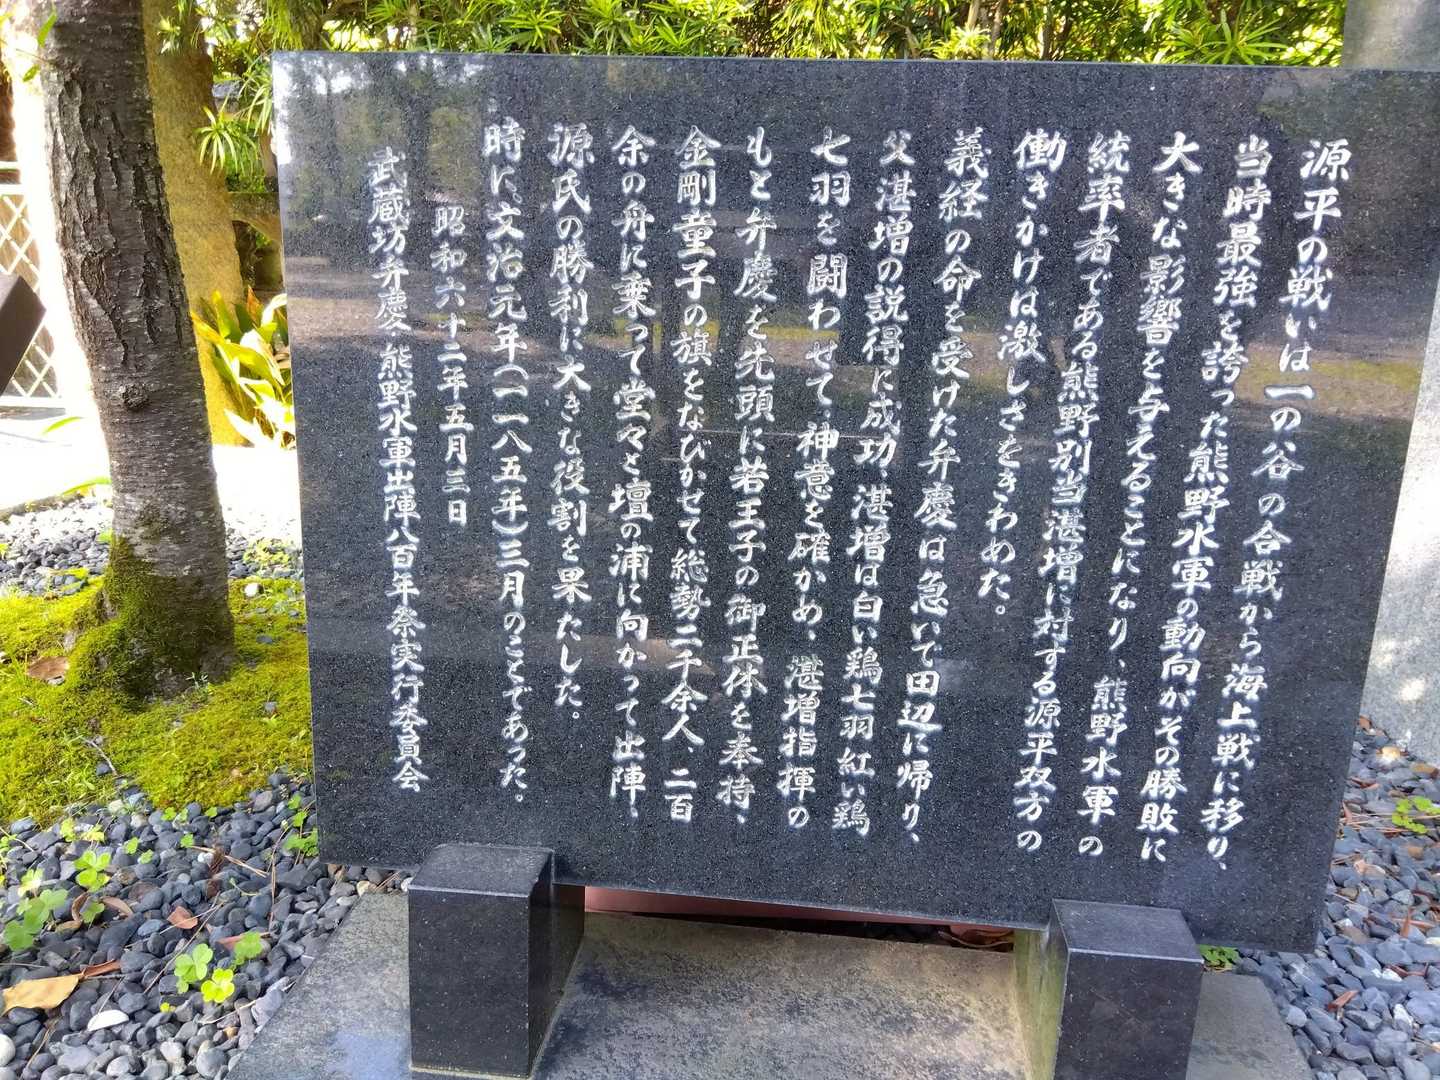 源平の戦いは一の谷の合戦から海上戦に移り、
当時最強を誇った熊野水軍の動向がその勝敗に
大きな影響を与えることになり、熊野水軍の
統率者である熊野別当湛増に対する源平双方の
働きかけは激しさをきわめた。
義経の命を受けた弁慶は急いで田辺に帰り、
父湛増の説得に成功、湛増は白い鶏七羽紅い鶏
七羽を闘わせて、神意を確かめ、湛増指揮の
もと弁慶を先頭に若王子の御正体を奉持、
金剛童子の旗をなびかせて総勢二千余人、二百
余の舟に乗って堂々と壇の浦に向かって出陣、
源氏の勝利に大きな役割を果たした。
時に、文治元年(一一八五年)三月のことであった。
昭和六十二年五月三日
武蔵坊弁慶 熊野水軍出陣八百年祭実行委員会